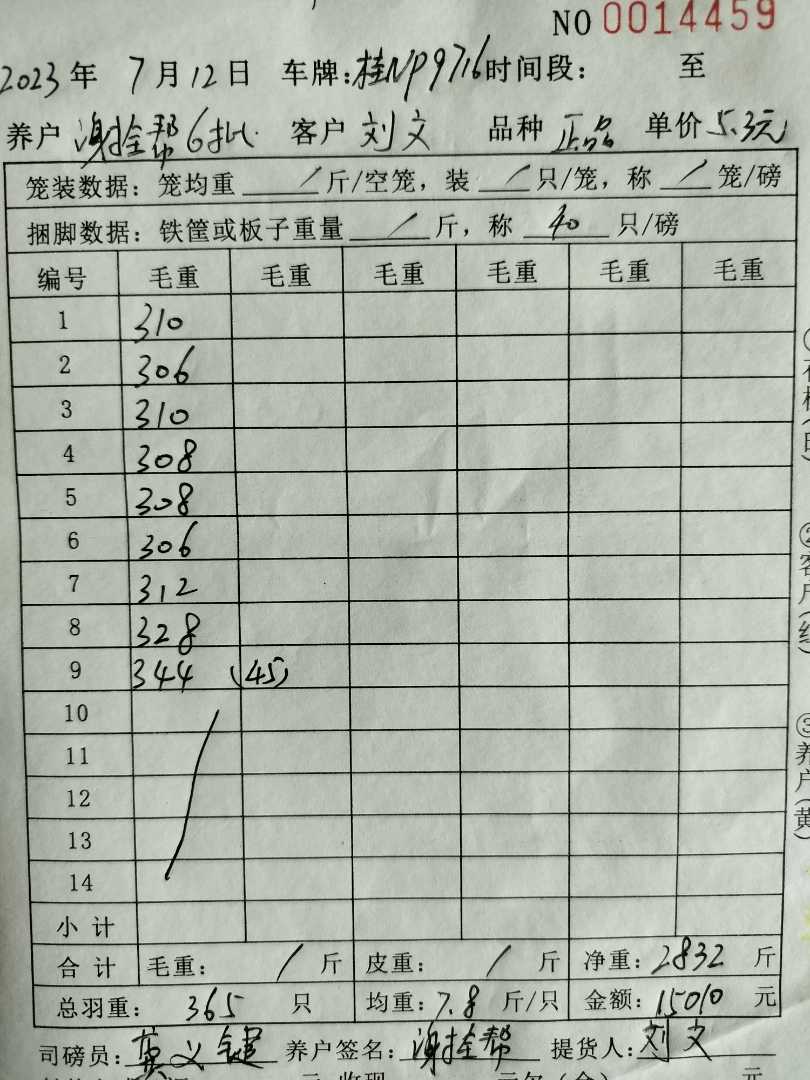 NO 0014459
2023年 7月12日 车牌:桂NP9716 时间段: 至
养户 谢拴帮6批 客户 刘文 品种 正品 单价 5.3元
笼装数据: 笼均重 / 斤/空笼, 装 / 只/笼, 称 / 笼/磅
捆脚数据: 铁筐或板子重量 / 斤, 称 40 只/磅
编号 毛重 毛重 毛重 毛重 毛重 毛重
1 310
2 306
3 310
4 308
5 308
6 306
7 312
8 328
9 344 (45)
10
11
12
13
14
小计
合计 毛重: / 斤 皮重: / 斤 净重: 2832 斤
总羽重: 365 只 均重: 7.8 斤/只 金额: 15010 元
司磅员: 义键 养户签名: 谢拴帮 提货人: 刘文
元 收现 元欠(余) 元
②客户(红)
③养户(黄)